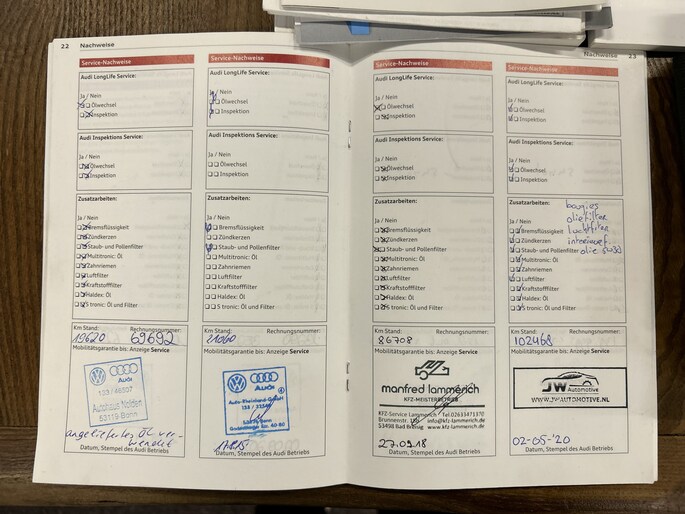 22 Nachweise
Service-Nachweise
Audi LongLife Service:
Ja / Nein
Ölwechsel
Inspektion
Audi Inspektions Service:
Ja / Nein
Ölwechsel
Inspektion
Zusatzarbeiten:
Ja / Nein
Bremsflüssigkeit
Zündkerzen
Staub- und Pollenfilter
Multitronic: Öl
Zahnriemen
Luftfilter
Kraftstofffilter
Haldex: Öl
S tronic: Öl und Filter
Km Stand: Rechnungsnummer:
19620 69692
Mobilitätsgarantie bis: Anzeige Service
Audi
Autohaus Nolden
53119 Bonn
angeliefertes Öl ver
wendet
Datum, Stempel des Audi Betriebs
Service-Nachweise
Audi LongLife Service:
Ja / Nein
Ölwechsel
Inspektion
Audi Inspektions Service:
Ja / Nein
Ölwechsel
Inspektion
Zusatzarbeiten:
Ja / Nein
Bremsflüssigkeit
Zündkerzen
Staub- und Pollenfilter
Multitronic: Öl
Zahnriemen
Luftfilter
Kraftstofffilter
Haldex: Öl
S tronic: Öl und Filter
Km Stand: Rechnungsnummer:
Mobilitätsgarantie bis: Anzeige Service
Audi
Datum, Stempel des Audi Betriebs
Service-Nachweise
Audi LongLife Service:
Ja / Nein
Ölwechsel
Inspektion
Audi Inspektions Service:
Ja / Nein
Ölwechsel
Inspektion
Zusatzarbeiten:
Ja / Nein
Bremsflüssigkeit
Zündkerzen
Staub- und Pollenfilter
Multitronic: Öl
Zahnriemen
Luftfilter
Kraftstofffilter
Haldex: Öl
S tronic: Öl und Filter
Km Stand: Rechnungsnummer:
86708
Mobilitätsgarantie bis: Anzeige Service
manfred lammerich
KFZ-MEISTERBETRIEB
KFZ-Service Lammerich Tel.02633/471370
info@kfz-lammerich.de
53498 Bad Breisig www.kfz-lammerich.de
27.09.18
Datum, Stempel des Audi Betriebs
Nachweise 23
Service-Nachweise
Audi LongLife Service:
Ja / Nein
Ölwechsel
Inspektion
Audi Inspektions Service:
Ja / Nein
Ölwechsel
Inspektion
Zusatzarbeiten:
bougies
oliefilter
Ja / Nein
luchtfilter
Bremsflüssigkeit
Zündkerzen
Staub- und Pollenfilter
Multitronic: Öl
Zahnriemen
Luftfilter
Kraftstofffilter
Haldex: Öl
S tronic: Öl und Filter
Km Stand: Rechnungsnummer:
102468
Mobilitätsgarantie bis: Anzeige Service
JW Automotive
WWW.JWAUTOMOTIVE.NL
02-05-'20
Datum, Stempel des Audi Betriebs